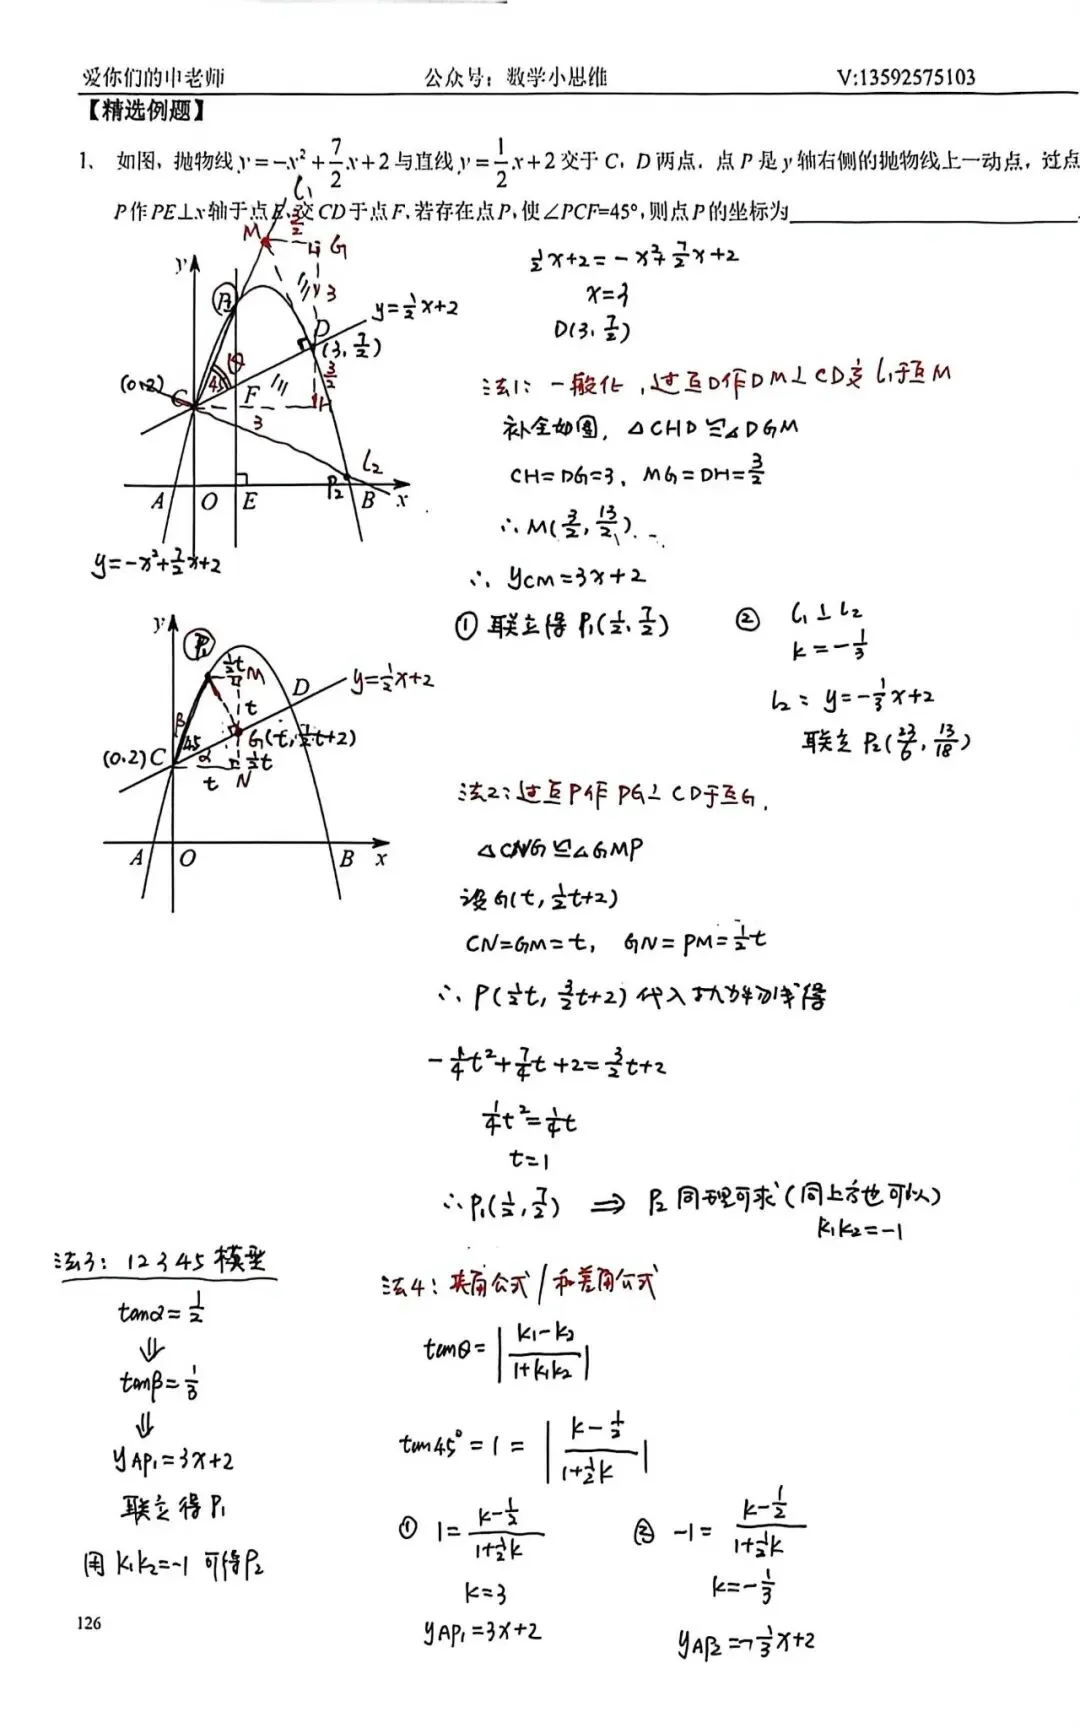 爱你们的申老师 公众号：数学小思维 V:13592575103
【精选例题】
1、如图，抛物线y=-x²+7/2x+2与直线y=1/2x+2交于C，D两点．点P是y轴右侧的抛物线上一动点，过点
P作PE⊥x轴于点E，交CD于点F，若存在点P，使∠PCF=45°，则点P的坐标为
l₁
M 3/2 G
3
y
P₁
y=1/2x+2
D
(3, 7/2)
θ
45
3/2
(0,2)
C F H
3
l₂
A O E P₂ B x
y=-x²+7/2x+2
1/2x+2=-x²+7/2x+2
x=3
D(3, 7/2)
法1：一般化，过点D作DM⊥CD交l₁于点M
补全如图，△CHD≌△DGM
CH=DG=3，MG=DH=3/2
∴M(3/2, 13/2)
∴ yCM=3x+2
① 联立得P₁(1/2, 7/2)
② l₁⊥l₂
k=-1/3
l₂：y=-1/3x+2
联立P₂(23/6, 13/18)
y
P₁
1/2t M
t
D
y=1/2x+2
β
45
G(t, 1/2t+2)
(0.2) C α 1/2t
t N
A O B x
法2：过点P作PG⊥CD于点G，
△CNG≌△GMP
设G(t, 1/2t+2)
CN=GM=t，GN=PM=1/2t
∴P(1/2t, 3/2t+2)代入抛物线得
-1/4t²+7/4t+2=3/2t+2
1/4t²=1/4t
t=1
∴P₁(1/2, 7/2) ⇒ P₂同理可求(同上方也可以)
k₁k₂=-1
法3：12345模型
tanα=1/2
⇓
tanβ=1/3
⇓
yAP₁=3x+2
联立得P₁
用k₁k₂=-1可得P₂
法4：夹角公式/和差角公式
tanθ=|(k₁-k₂)/(1+k₁k₂)|
tan45°=1=|(k-1/2)/(1+1/2k)|
① 1=(k-1/2)/(1+1/2k)
k=3
yAP₁=3x+2
② -1=(k-1/2)/(1+1/2k)
k=-1/3
yAP₂=-1/3x+2
126